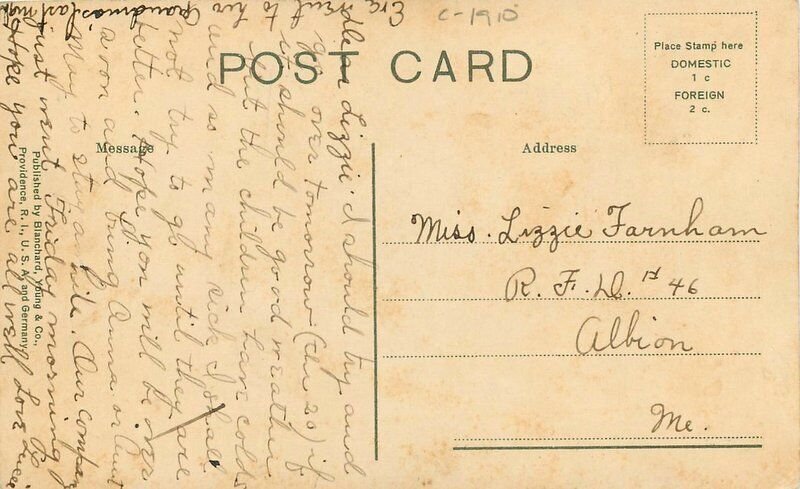 c-1910
POST CARD
Place Stamp here
DOMESTIC
1 c
FOREIGN
2 c.
Message
Address
Dear Lizzie. I should try and
go over tomorrow (the 20) if
it should be good weather
but the children have colds
and so many sick I shall
not try to go until they are
better. Hope you will be over
soon and bring Anna or Aunt
May to stay a while. Our company
just went Friday morning
Hope you are all well Love
Grandma's last night
Era went to
Miss. Lizzie Farnham
R. F. D. 46
Albion
Me.
Published by Blanchard, Young & Co.,
Providence, R. I., U. S. A. and Germany.